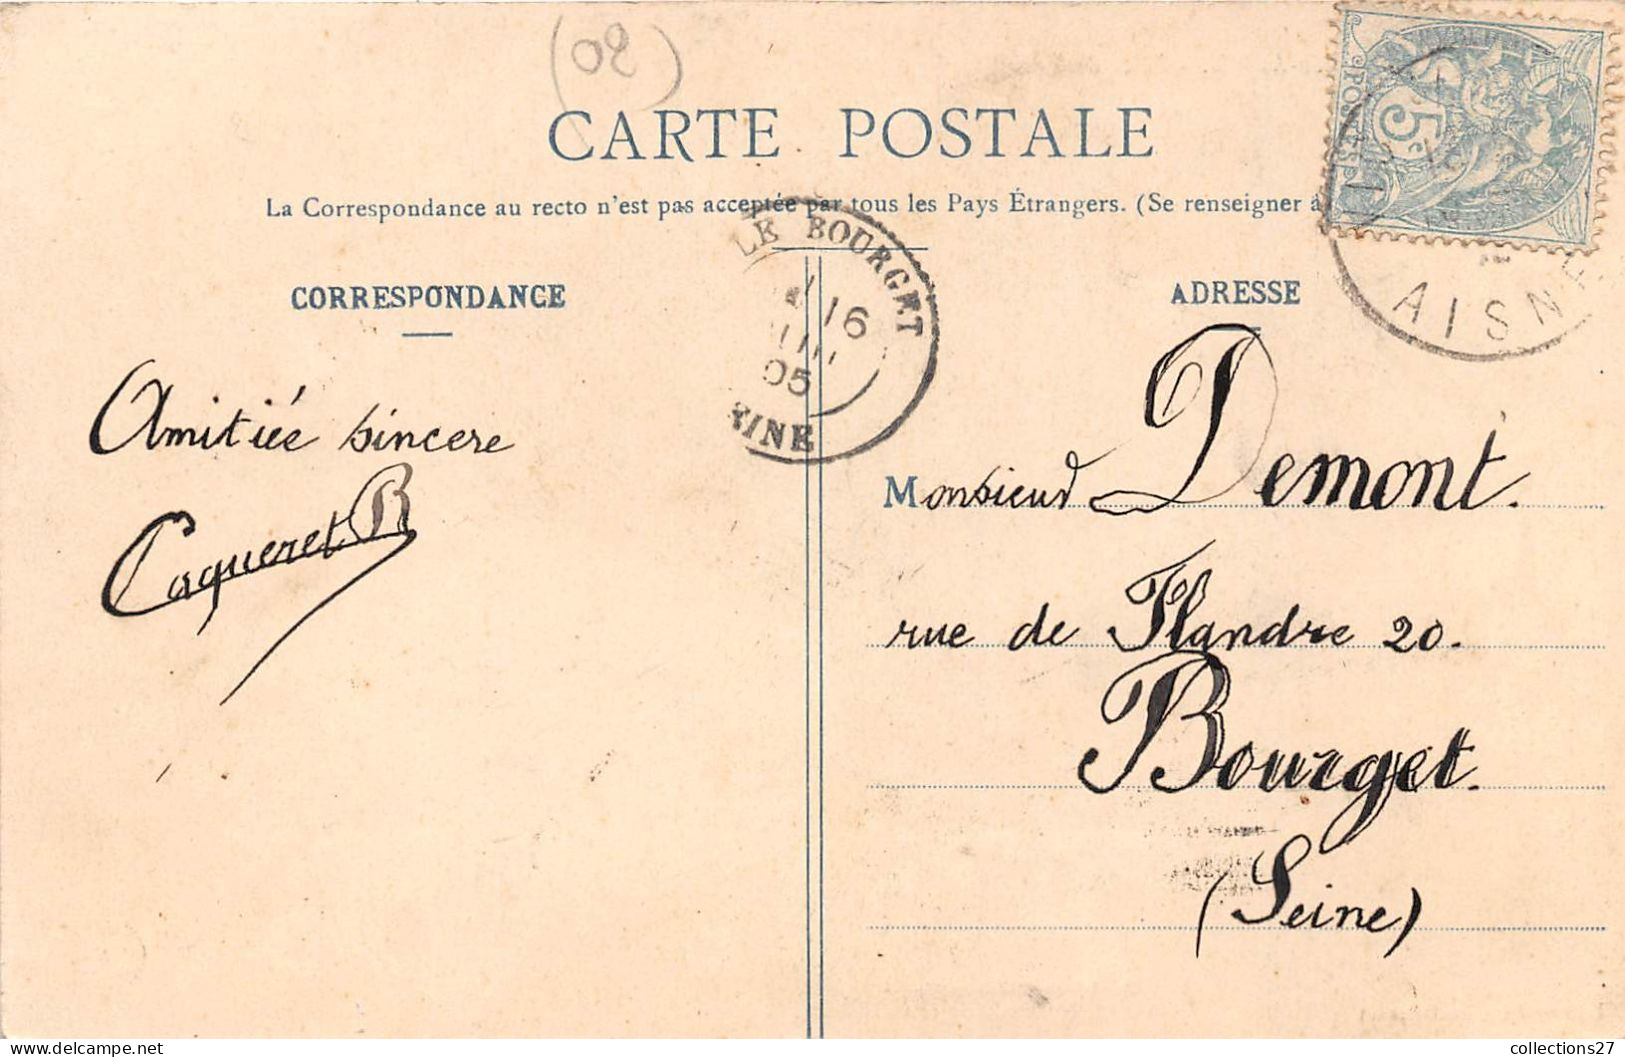 (02)
CARTE POSTALE
La Correspondance au recto n'est pas acceptée par tous les Pays Étrangers. (Se renseigner à
5c
AISNE
LE BOURGET
16
05
SEINE
CORRESPONDANCE
Amitiée sincere
Caqueret B
ADRESSE
Monsieur Demont.
rue de Flandre 20.
Bourget.
(Seine)
collections27